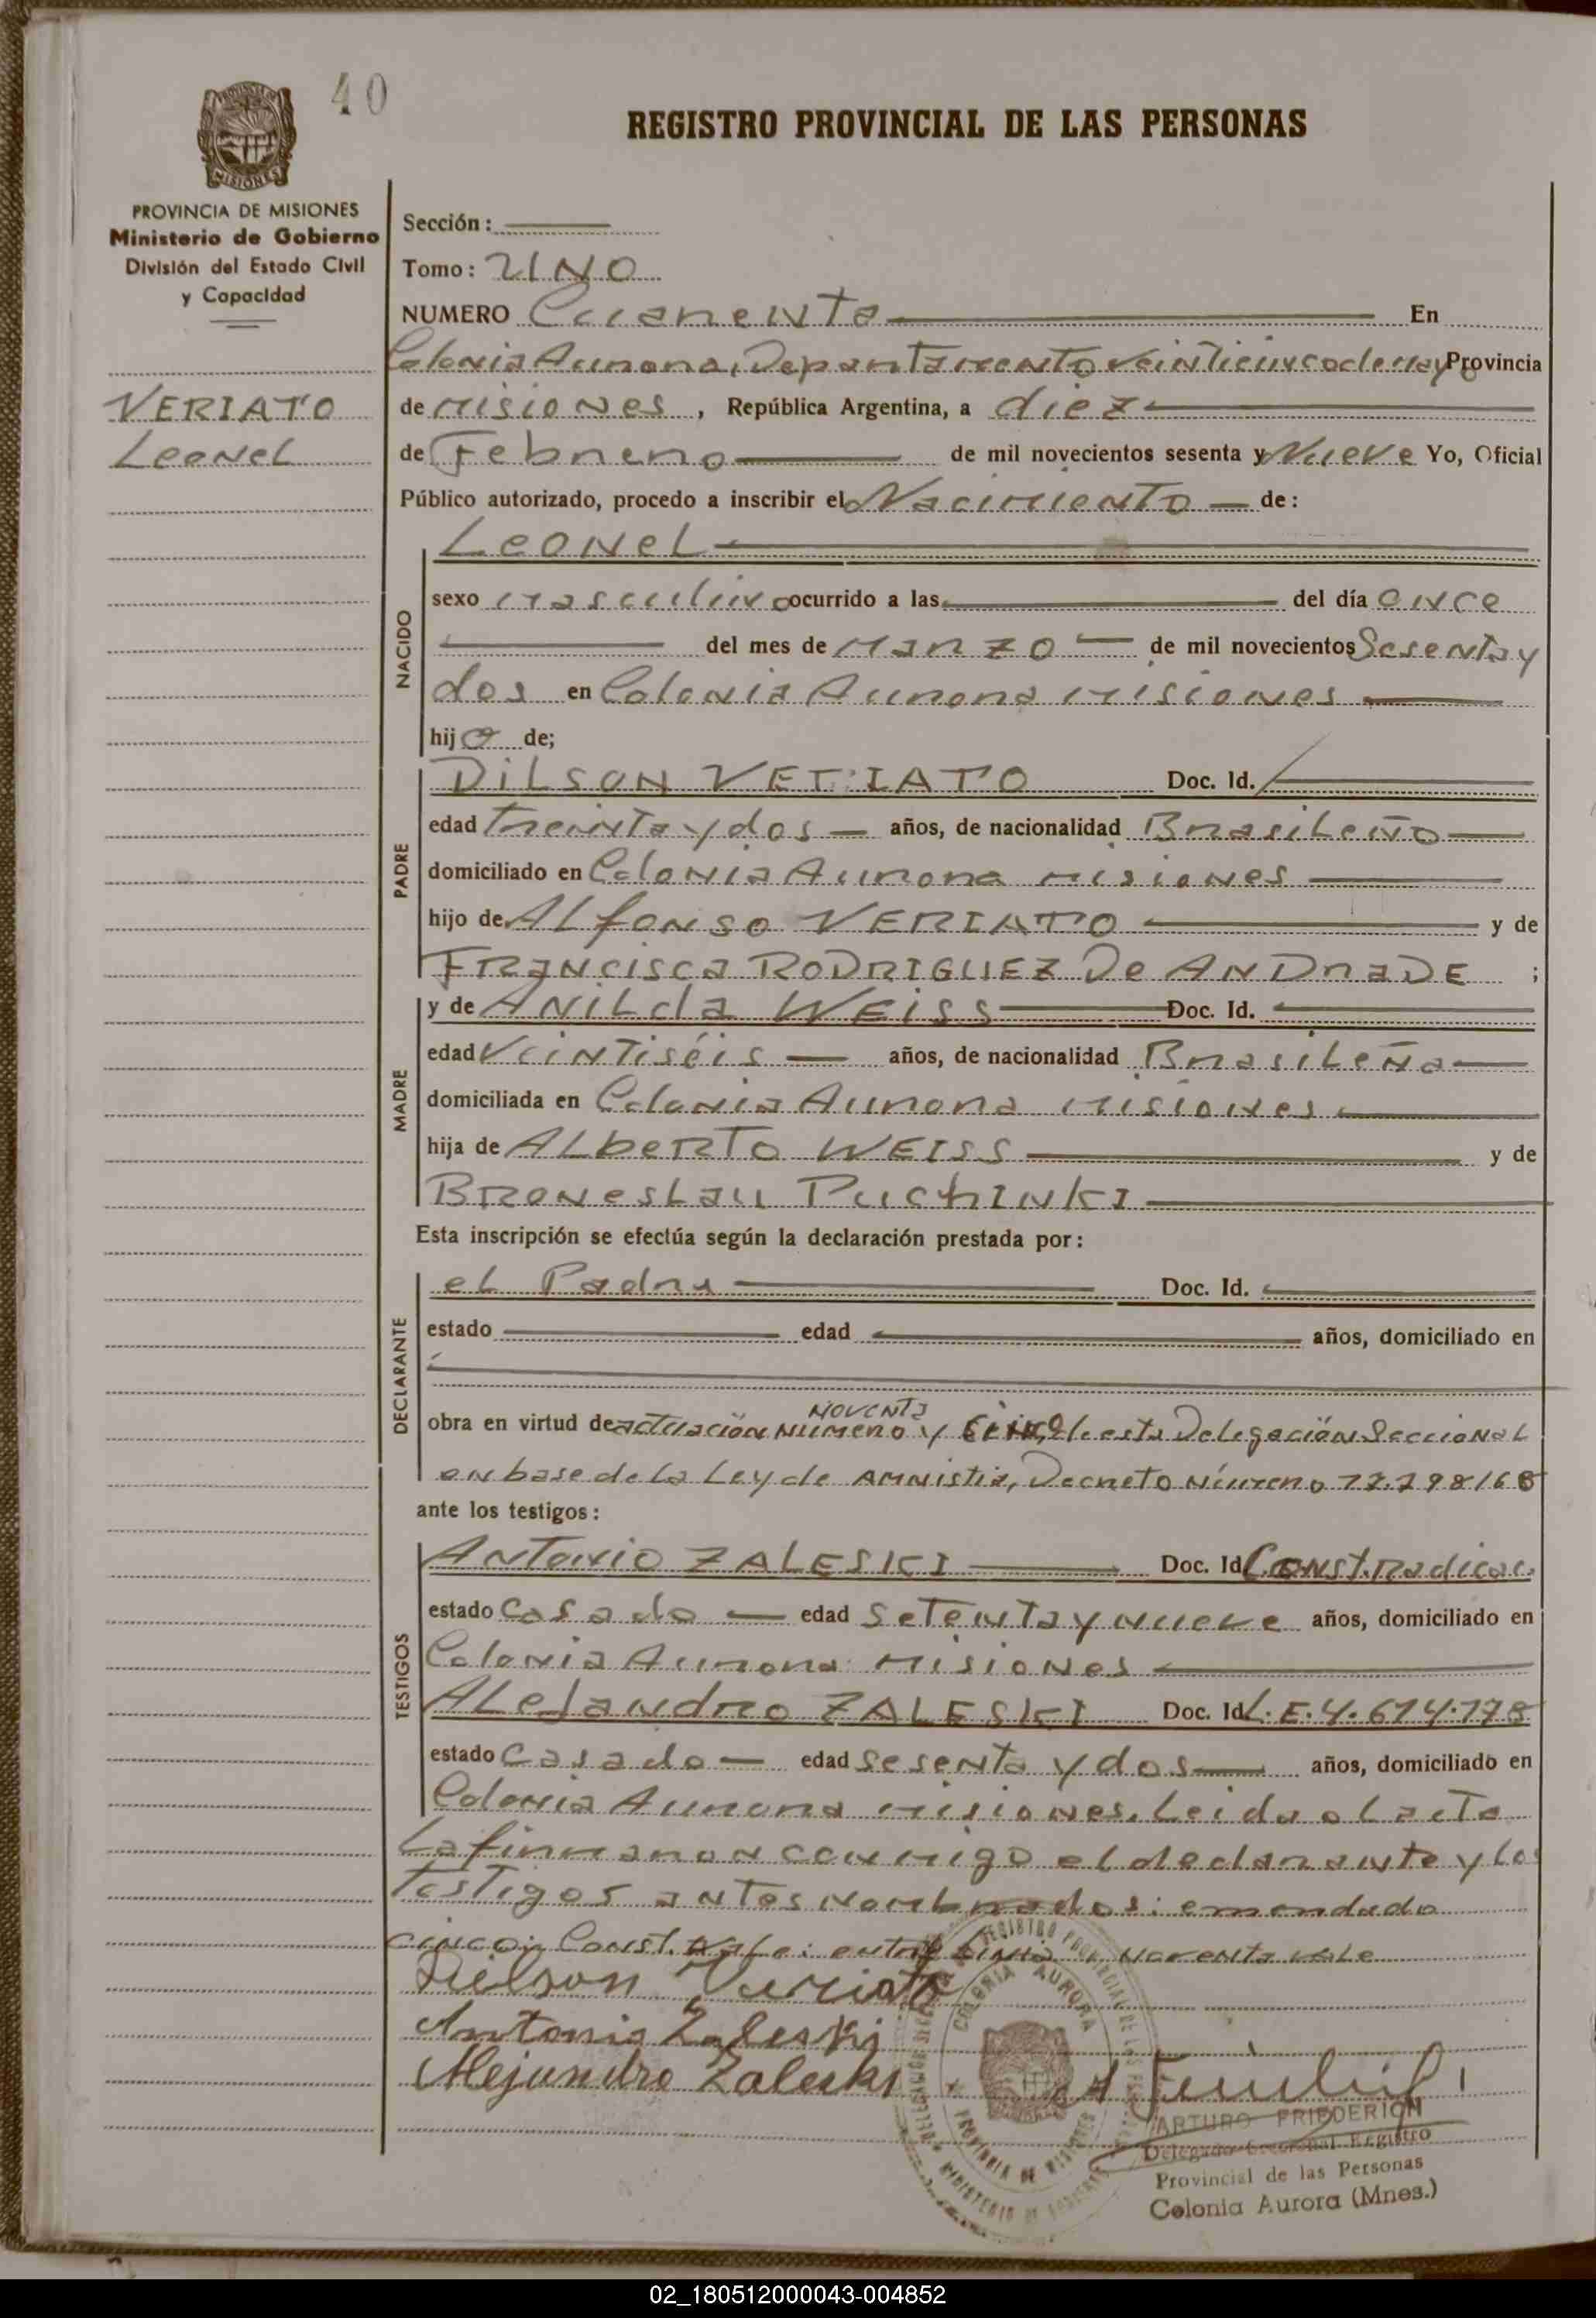 40
REGISTRO PROVINCIAL DE LAS PERSONAS
MISIONES
PROVINCIA DE MISIONES
Ministerio de Gobierno
División del Estado Civil
y Capacidad
VERIATO
Leonel
Sección :
Tomo : UNO
NUMERO Cuarenta En
Colonia Aurora, Departamento Veinticinco de Mayo Provincia
de Misiones, República Argentina, a diez
de Febrero de mil novecientos sesenta y Nueve Yo, Oficial
Público autorizado, procedo a inscribir el Nacimiento de :
NACIDO
Leonel
sexo masculino ocurrido a las del día once
del mes de Marzo de mil novecientos Sesenta y
dos en Colonia Aurora Misiones
hijo de;
PADRE
DILSON VERIATO Doc. Id.
edad treinta y dos años, de nacionalidad Brasileño
domiciliado en Colonia Aurora Misiones
hijo de Alfonso VERIATO y de
FRANCISCA RODRIGUEZ De ANDRADE ;
MADRE
y de ANILda WEISS Doc. Id.
edad Veintiséis años, de nacionalidad Brasileña
domiciliada en Colonia Aurora Misiones
hija de ALbeRTO WEISS y de
BRONesLau PuchINKI
Esta inscripción se efectúa según la declaración prestada por :
DECLARANTE
el Padre Doc. Id.
estado edad años, domiciliado en
NOVENTA
obra en virtud de actuación Número y cinco de esta Delegación Seccional
en base de la Ley de AMNistia, Decreto Número
ante los testigos :
TESTIGOS
ANTONIO ZALESKI Doc. Id Const. Radicac.
estado Casado edad Setenta y nueve años, domiciliado en
Colonia Aurora Misiones
ALeJandro ZALESKI Doc. Id L.E.4.614.178
estado Casado edad Sesenta y dos años, domiciliado en
Colonia Aurora Misiones. Leida el acta
La firmaron conmigo el declarante y los
Testigos antes Nombrados: emendado
cinco; Const. Vale: entre Linia Noventa vale
Dilson Veriato
Antonio Zaleski
Alejandro Zaleski
COLONIA AURORA
PROVINCIA DE MISIONES
ARTURO FRIEDERICH
Delegado Seccional Registro
Provincial de las Personas
Colonia Aurora (Mnes.)
02_180512000043-004852